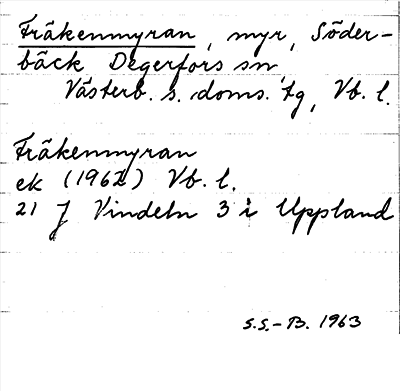 Fräkenmyran, myr, Söder-
bäck Degerfors sn,
Västerb. s. doms. tg, Vb. l.
Fräkenmyran
ek (1962) Vb. l.
21 J Vindeln 3 i Uppland
S.S.-B. 1963